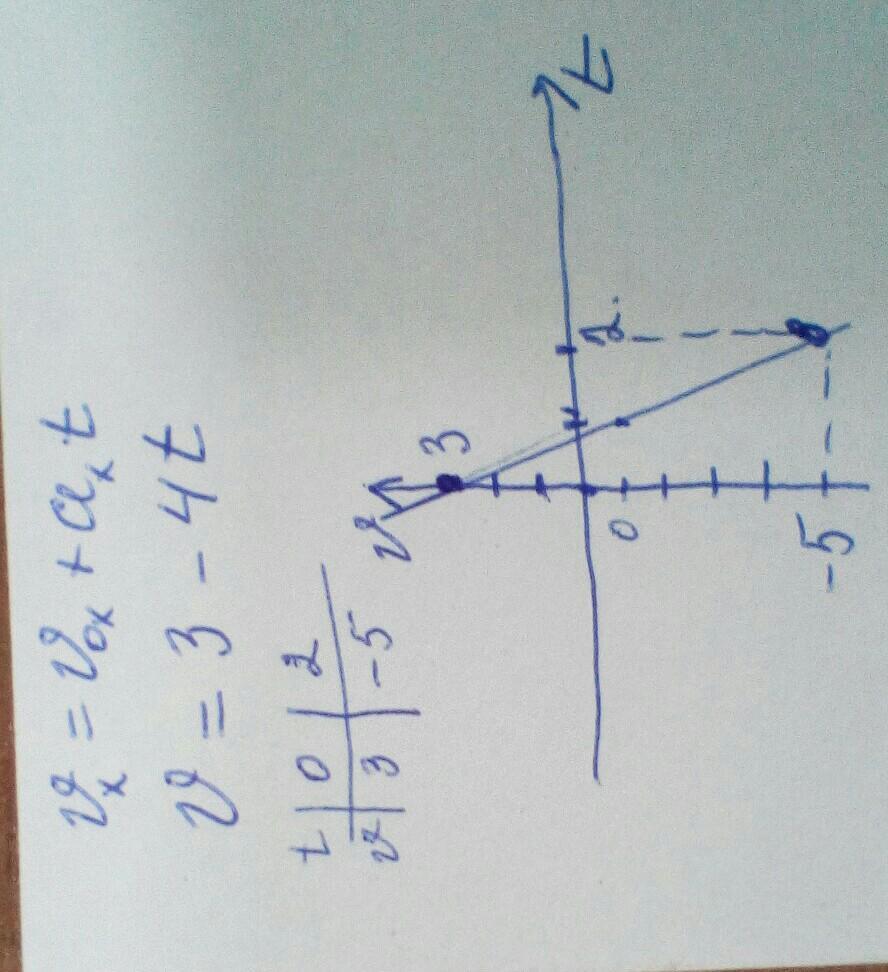 𝜗ₓ = 𝜗₀ₓ + aₓt
𝜗 = 3 - 4t
t | 0 | 2
𝜗 | 3 | -5
𝜗
3
t
2
0
-5